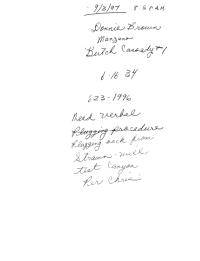 9/3/97 8:50 AM
Donnie Brown
Manzano
Butch Cassidy #1
6-16 34
623-1996
Need verbal
Plugging procedure
Plugging back from
Strawn - will
test Canyon
Per Chris